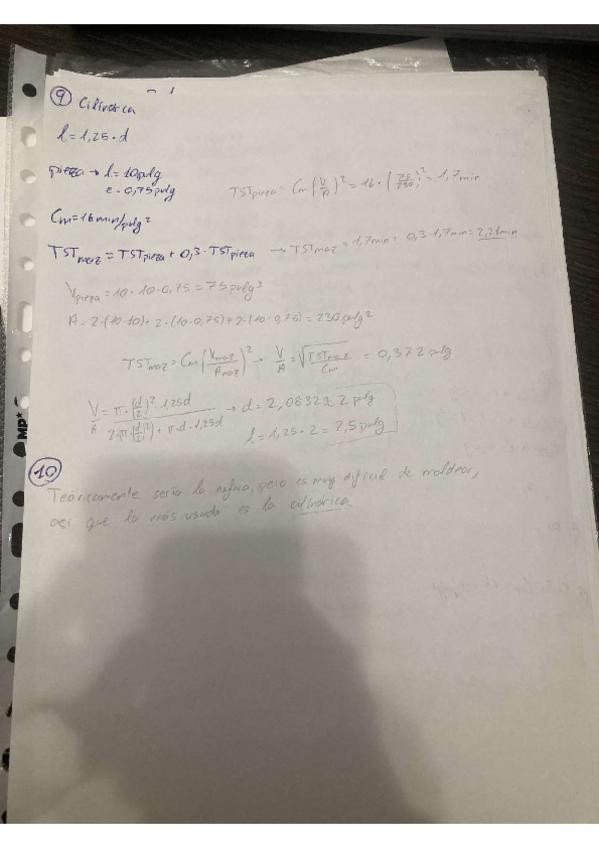 9 Cilíndrica
l = 1,25 · d
pieza → l = 10 pulg
e = 0,75 pulg
TSTpieza = Cm (V/A)² = 16 · (75/230)² = 1,7 min
Cm = 16 min/pulg²
TSTmaz = TSTpieza + 0,3 · TSTpieza → TSTmaz = 1,7 min + 0,3 · 1,7 min = 2,21 min
Vpieza = 10 · 10 · 0,75 = 75 pulg³
A = 2 · (10 · 10) + 2 · (10 · 0,75) + 2 · (10 · 0,75) = 230 pulg²
TSTmaz = Cm (Vmaz/Amaz)² → V/A = √(TSTmaz/Cm) = 0,372 pulg
V/A = π · (d/2)² · 1,25d / 2 · π · (d/2)² + π · d · 1,25d → d = 2,0832 ≈ 2 pulg
l = 1,25 · 2 = 2,5 pulg
10
Teóricamente sería la esfera, pero es muy difícil de moldear,
así que la más usada es la cilíndrica
MP